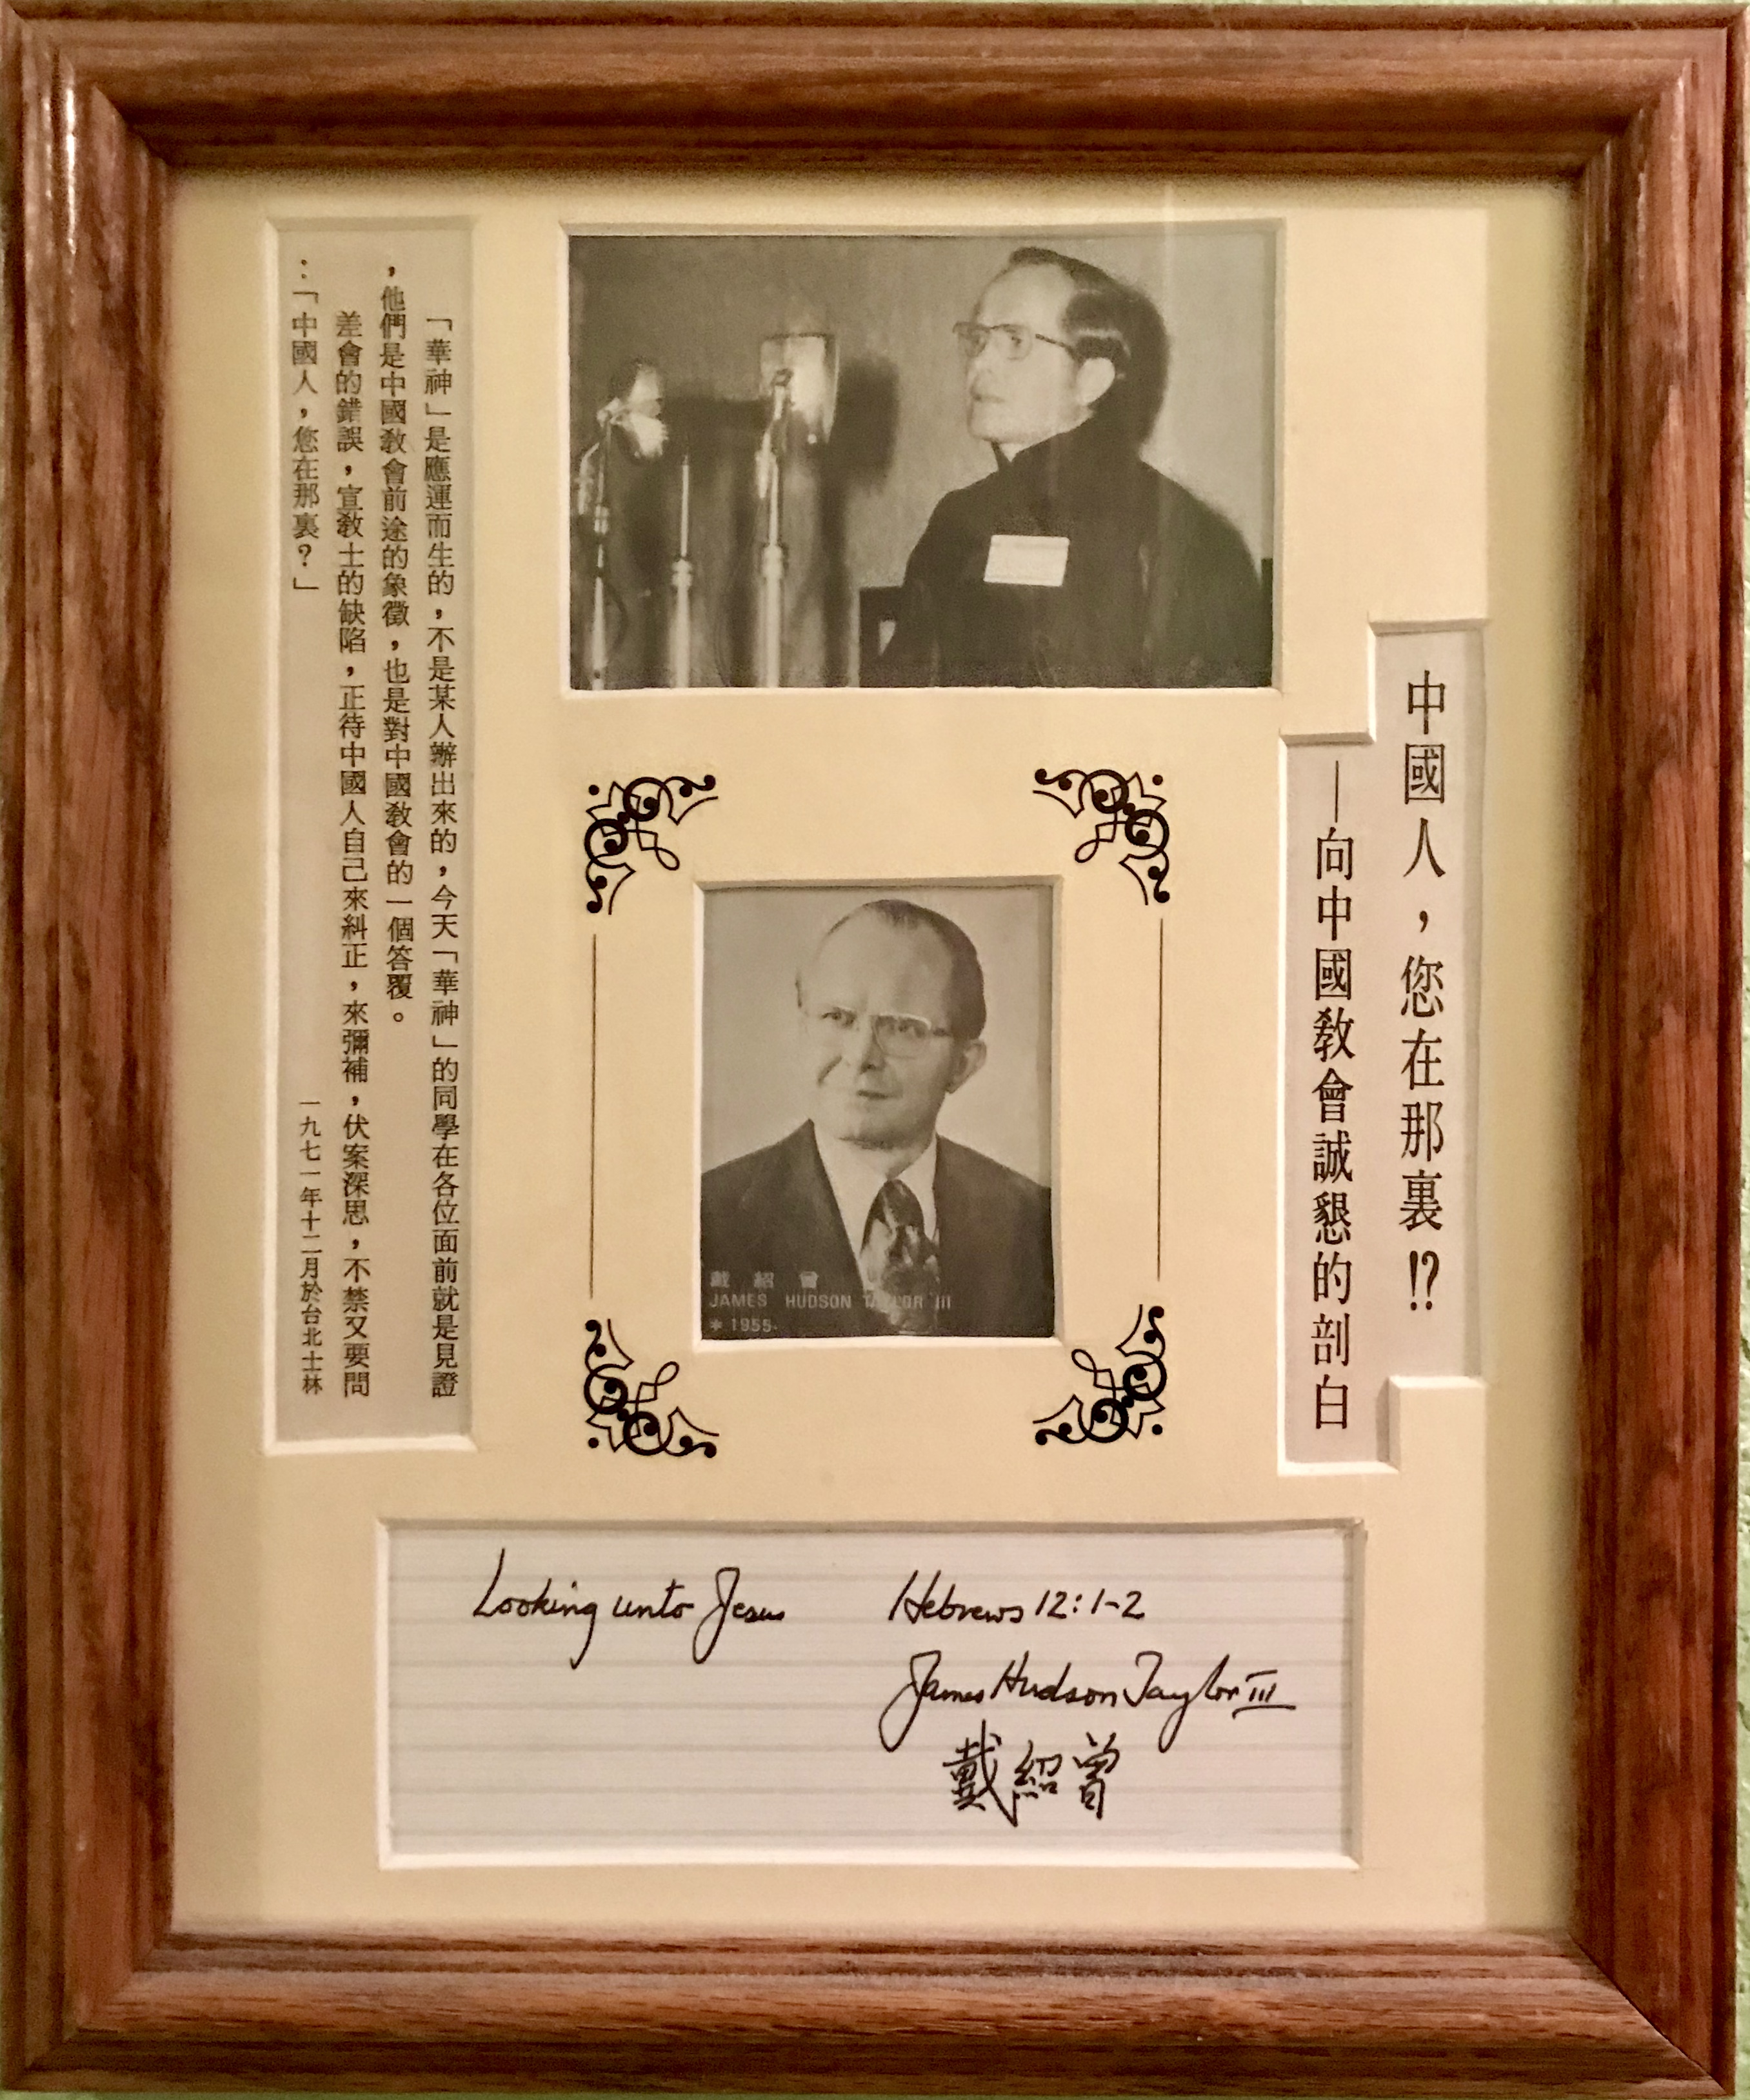 中國人，您在那裏!?
—向中國教會誠懇的剖白
「華神」是應運而生的，不是某人辦出來的，今天「華神」的同學在各位面前就是見證
，他們是中國教會前途的象徵，也是對中國教會的一個答覆。
差會的錯誤，宣教士的缺陷，正待中國人自己來糾正，來彌補，伏案深思，不禁又要問
：「中國人，您在那裏？」
一九七一年十二月於台北士林
戴紹曾
JAMES HUDSON TAYLOR III
* 1955-
Looking unto Jesus Hebrews 12:1-2
James Hudson Taylor III
戴紹曾